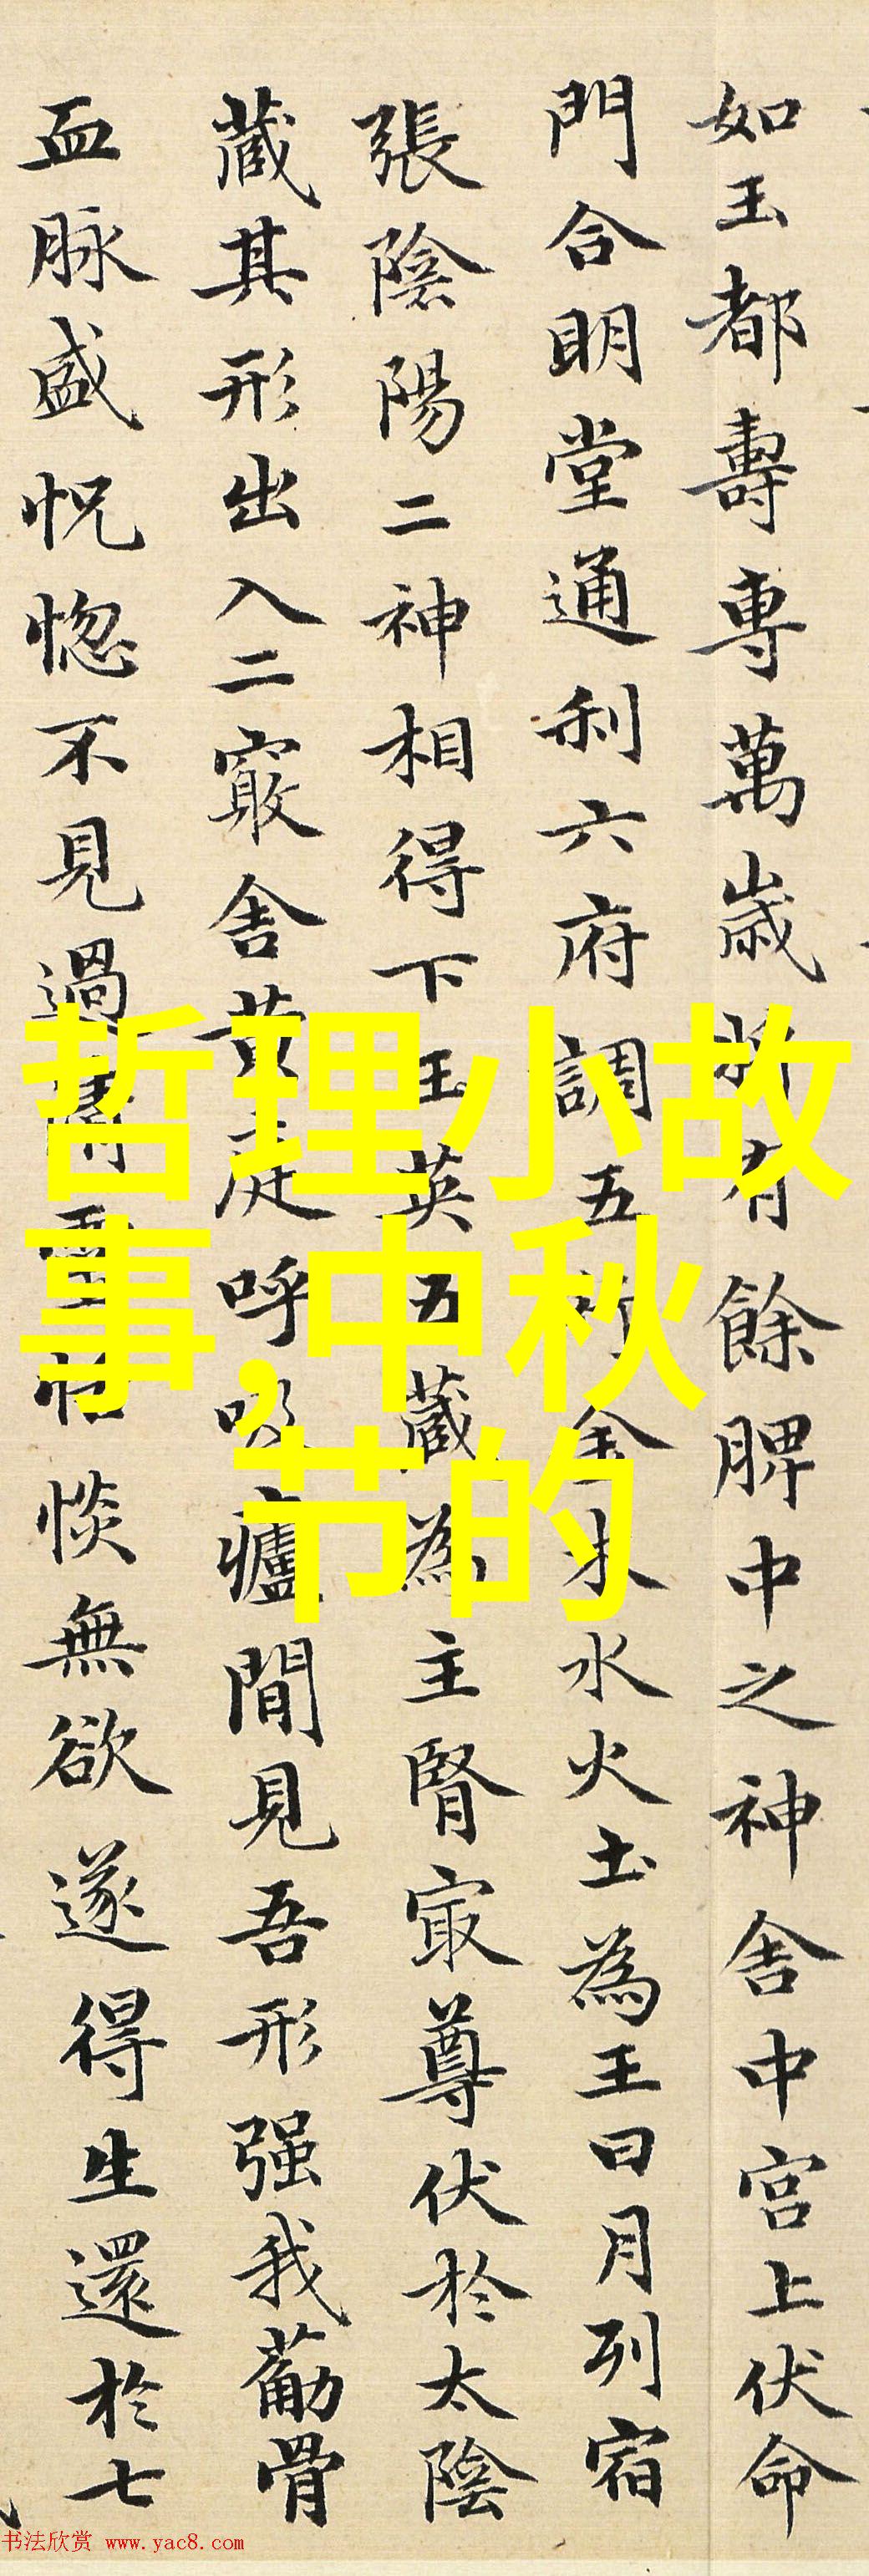 如玉都壽專萬歲將有餘脾中之神舍中宮上伏命
門合明堂通利六府調五行金木水火土為王日月列宿
張陰陽二神相得下玉英五藏為主腎㝡尊伏於太陰
藏其形出入二竅舍黃庭呼吸廬間見吾形强我筋骨
血脉盛怳惚不見過清靈恬惔無欲遂得生還於七
哲理小故
事,中秋
节的
书法欣赏 www.yac8.com